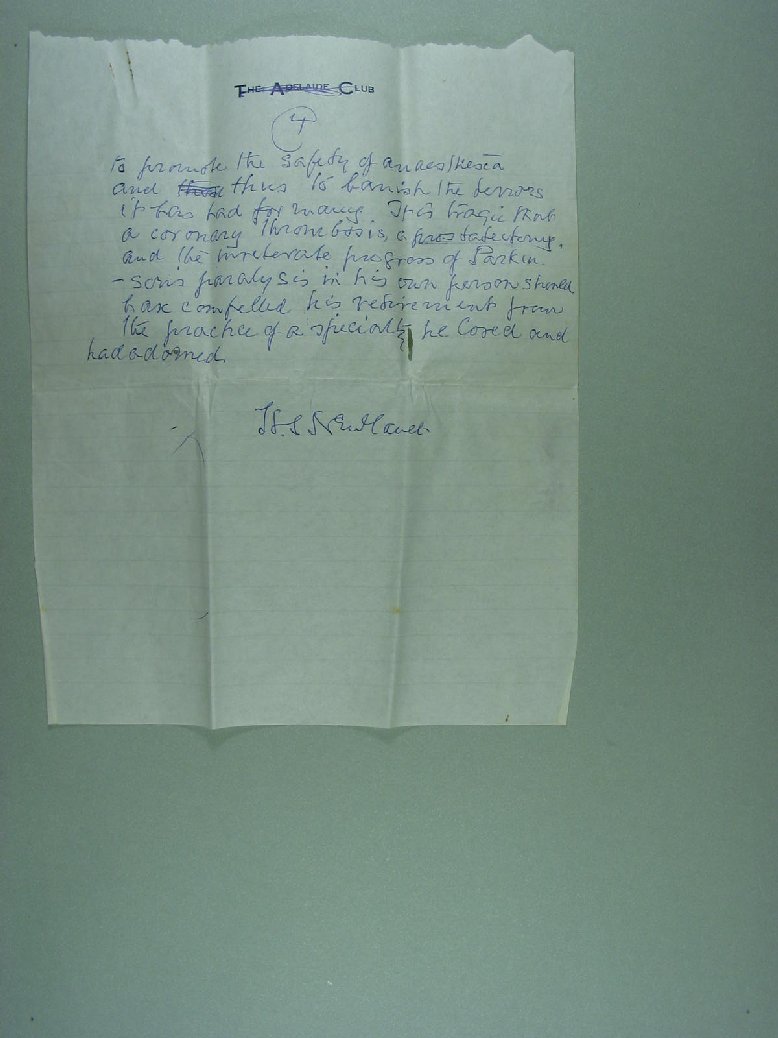 THE ADELAIDE CLUB
4
to promote the safety of anaesthesia
and thus to banish the terrors
it has had for many. It is tragic that
a coronary thrombosis, a prostatectomy,
and the inveterate progress of Parkin-
-son's paralysis in his own person should
have compelled his retirement from
the practice of a specialty he loved and
had adorned.
H.S. Newland